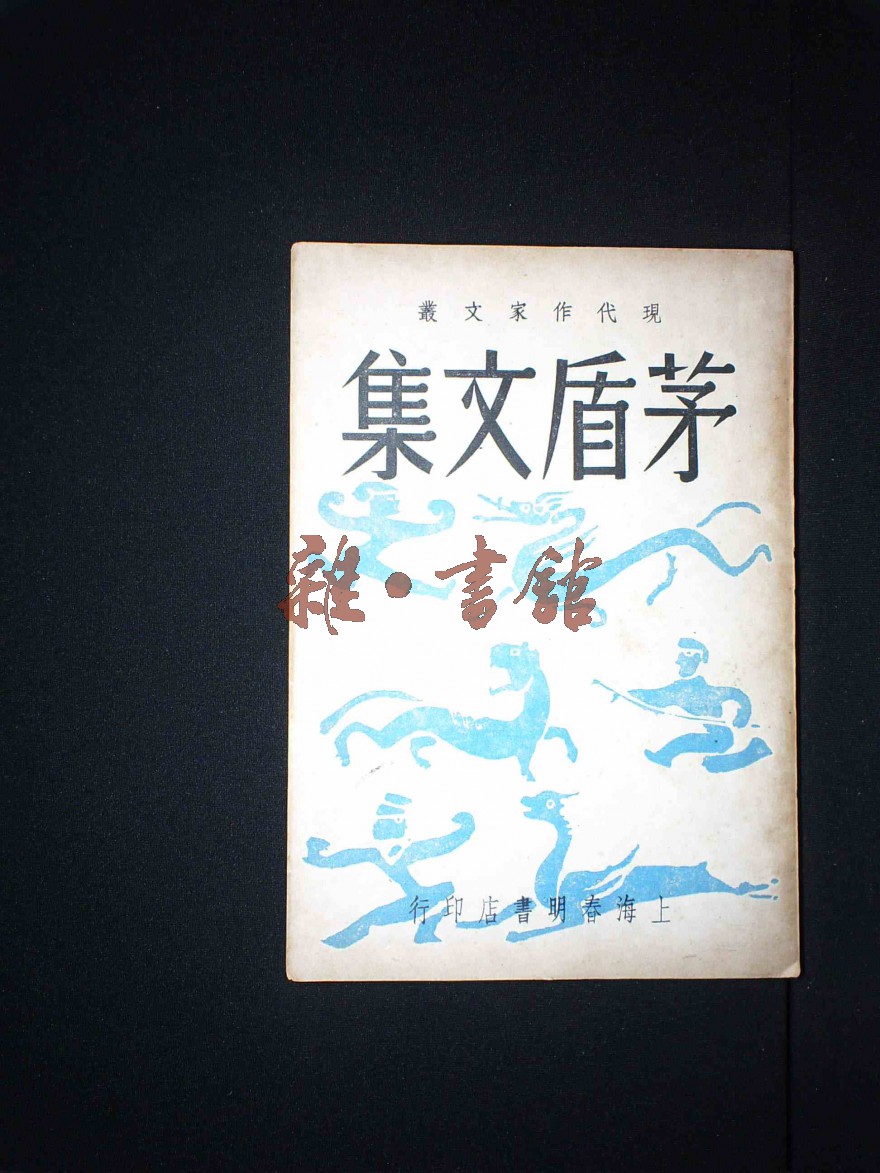 現代作家文叢
茅盾文集
雜·書館
上海春明書店印行